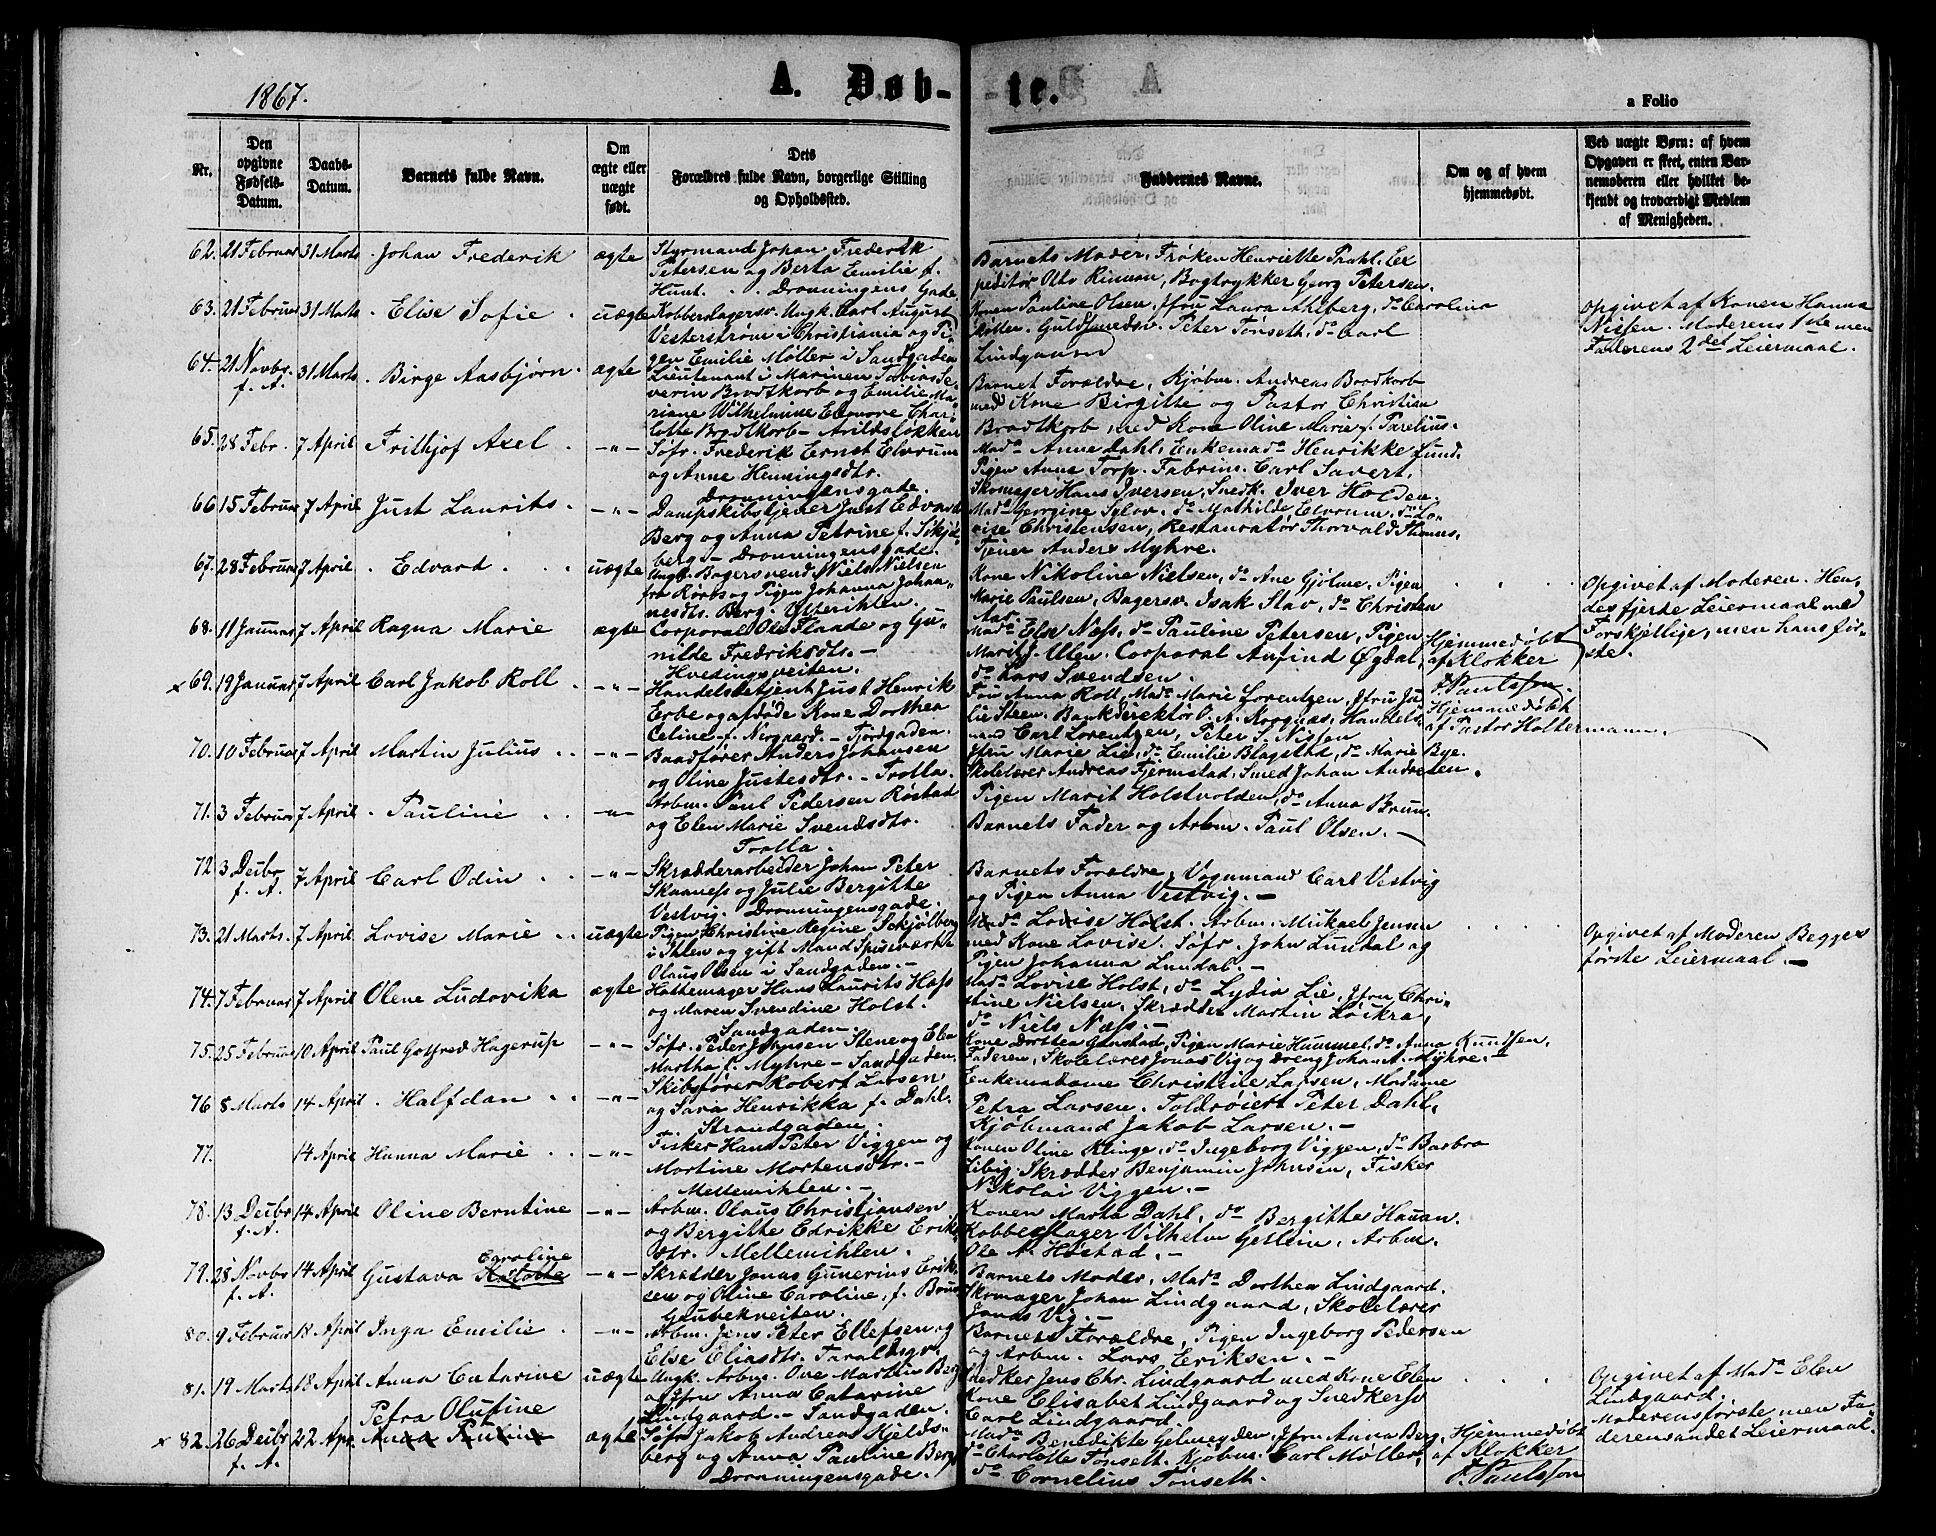 1867.
A. Døb-
te.
a Folio
Nr.
Den opgivne Fødsels-Datum.
Daabs-Datum.
Barnets fulde Navn.
Om ægte eller uægte født.
Dets Forældres fulde Navn, borgerlige Stilling og Opholdssted.
Faddernes Navne.
Om og af hvem hjemmedøbt.
Ved uægte Børn: af hvem Opgaven er skeet, enten Barnemoderen eller hvilket bekjendt og troværdigt Medlem af Menigheden.
62. 21 Februar 31 Marts Johan Frederik ægte Styrmand Johan Frederik
Petersen og Berta Emilie f.
Hunt. Dronningens Gade.
Barnets Moder, Frøken Henriette Prahl. Ex
peditør Otto , Bogtrykker Georg Petersen.
63. 21 Februar 31 Marts Elise Sofie uægte Kobberslagersv. Ungk. Carl August
Vesterstrøm i Christiania og Pi-
gen Emilie Møller i Sandgaden
Konen Pauline Olsen, Jfru Laura Ahlberg, do Carolina
Guldsmedsv. Peter Tønseth, do Carl
Lindgaard
Opgivet af Konen Hanna
Nissen. Moderens 1ste men
Faderens 2det Leiermaal.
64. 21 Novbr. f. A. 31 Marts Birge Aasbjørn. ægte Lieutenant i Marinen Tobias Se-
verin Brodtkorb og Emilie Ma-
riane Wilhelmine Elenore Char-
lotte Brodtkorb - Arildsløkken
Barnet Forældre, Kjøbm. Andreas Brodtkorb
med Kone Birgitte og Pastor Christian
Brodtkorb med Kone Oline Marie f. Parelius.
65. 28 Febr. 7 April Frithjof Axel -"- Søfr. Frederik Ernst Elvrum
og Anne Henningsdtr.
Dronningensgade.
Mada Anne Dahl, Enkemada Henrikke Lund.
Pigen Anne Torp. Fabrim. Carl Savert,
Skomager Hans Iversen, Snedk. Iver Holden.
66 15 Februar 7 April Just Laurits. -"- Dampskibstjener Just Edvard
Berg og Anna Petrine f. Søkjø-
berg - Dronningensgade.
Mada Georgine Sylov. do Mathilde Elvrum. do Lo-
vise Christensen, Restauratør Thorvald Thoms.
Tjener Anders Myhre.
67. 28 Februar 7 April Edvard uægte Ungk. Bagersvend Niels Nielsen
fra Røros og Pigen Johanna Johan-
nesdtr. Berg. Ytterihlen.
Kone Nikoline Nielsen, do Ane Gjølme, Pigen
Marie Paulsen, Bagersv. Isak Stav, do Christen
Aas.
Opgivet af Moderen. Hen-
des fjerde Leiermaal med
Forskjellige, men hans før-
ste.
68. 11 Januar 7 April Ragna Marie ægte Corporal Ole Flaade og Gu-
nilde Fredriksdtr. -
Hvedingsveiten.
Mada Else Næss, do Pauline Petersen, Pigen
Marit J. Ulen. Corporal Anfind Øgdal,
do Lars Svendsen.
Hjemmedøbt
af Klokker
F. Paulsson
x 69. 19 Januar 7 April Carl Jakob Roll -"- Handelsbetjent Just Henrik
Erbe og afdøde Kone Dorthea
Celine f. Nirgaard. - Fjordgaden.
Fru Anna Roll, Mada Marie Lorentzen, Jfru Ju-
lie Steen. Bankdirektør O. A. Korgnæs, Handels-
mand Carl Lorentzen, Peter S. Nissen
Hjemmedøbt
af Pastor Holtermann.
70. 10 Februar 7 April Martin Julius -"- Baadfører Anders Johansen
og Oline Justesdtr. - Trolla.
Jfru Marie Lie, do Emilie Blagstad, do Marie Bye.
Skolelærer Andreas Fjermstad, Smed Johan Andresen.
71. 3 Februar 7 April Pauline -"- Arbm. Paul Pedersen Røstad
og Elen Marie Svendsdtr.
Trolla.
Pigen Marit Holstvolden, do Anna Brun.
Barnets Fader og Arbm. Paul Olsen.
72 3 Decbr f. A. 7 April Carl Odin -"- Skrædderarbeider Johan Peter
Skaaness og Julie Bergitte
Vestvig. Dronningensgade.
Barnets Forældre, Vognmand Carl Vestvig
og Pigen Anna Vestvig. -
73. 21 Marts. 7 April Lovise Marie uægte Pigen Christine Regine Sokjølberg
i Ihlen og gift Mand Spisevært
Olaus Olsen i Sandgaden. -
Lovise Holst. Arbm. Mickael Jensen
med Kone Lovise. Søfr. John Lundal og
Pigen Johanna Lundal. -
Opgivet af Moderen Begges
første Leiermaal. -
74. 7 Februar 7 April Olene Ludovika ægte Hattemager Hans Laurits Hass
og Maren Svendine Holst.
Sandgaden.
Mada Lovise Holst, do Lydia Lie, Jfru Chri-
stine Nielsen, Skrædder Martin Løikra,
do Niels Næss. -
75. 25 Februar 10 April Paul Gotfred Hagerup -"- Søfr. Peder Johnsen Stene og Elen
Martha f. Myhre - Sandgaden.
Kone Dorthea Grustad, Pigen Marie Hummel, do Anna Knudsen,
Faderen, Skolelærer Jonas Vig og Dreng Johan A. Myhre.
76 8 Marts 14 April Halfdan -"- Skibsfører Robert Larsen
og Sara Henrikka f. Dahl.
Strandgaden.
Enkemadame Christine Larsen, Madame
Petra Larsen. Toldrøiert Peter Dahl,
Kjøbmand Jakob Larsen. -
77. 14 April Hanna Marie -"- Fisker Hans Peter Viggen og
Martine Mortensdtr. -
Mellemihlen. -
Konen Oline Klinge, do Ingeborg Viggen, do Barbro
Libig. Skrædder Benjamin Johnsen, Fisker
Nikolai Viggen. -
78. 13 Decbr f. A. 14 April Oline Berntine -"- Arbm. Olaus Christiansen
og Bergitte Edrikke Erik-
sdtr. Mellemihlen.
Konen Marta Dahl, do Bergitte Hauan.
Kobberslager Vilhelm Geslein, Arbm.
Ole N. Høstad. -
79. 28 Novbr f. A. 14 April Gustava Caroline -"- Skrædder Jonas Gunerius Erik-
sen og Oline Caroline, f. Brun
Gaubekveiten.
Barnets Moder, Mada Dorthea Lindgaard.
Skomager Johan Lindgaard, Skolelærer
Jonas Vig. -
80. 9 Februar 18 April Inga Emilie -"- Arbm. Jens Peter Ellefsen og
Else Eliasdtr. Taraldsgv.
Barnets Forældre, Pigen Ingeborg Pedersen
og Arbm. Lars Eriksen. -
81. 19 Marts 18 April Anna Catarine uægte Ungk. Arbm. Ove Martin Berg
og Jfru Anna Catarine
Lindgaard. - Sandgaden.
Snedker Jens Chr. Lindgaard med Kone Elen
Kone Elisabet Lindgaard og Snedkersv
Carl Lindgaard.
Opgivet af Mada Elen
Lindgaard.
Moderens første men Fa-
derens andet Leiermaal.
x 82. 26 Decbr f. A. 22 Apr. Petra Olufine
Anna Pauline ægte Søfr Jakob Andreas Kjelds-
berg og Anna Pauline Berg
Dronningensgade.
Mada Benedikte Gelmeyden, Jfru Anna Berg,
do Charlotte Tønseth. Kjøbm. Carl Møller,
do Cornelius Tønseth.
Hjemmedøbt
af Klokker
F. Paulsson